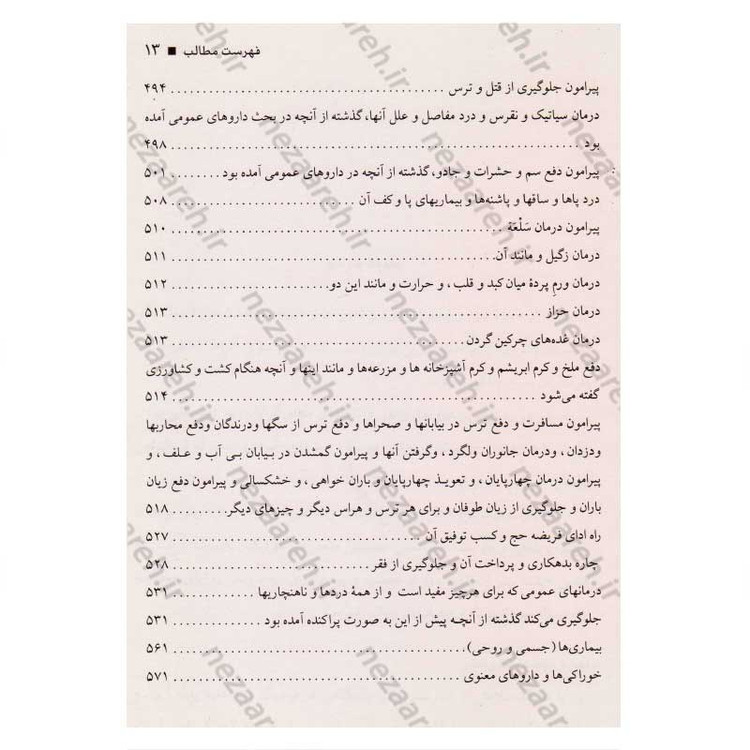 فهرست مطالب ■ ۱۳
پیرامون جلوگیری از قتل و ترس ........................................ ۴۹۴
درمان سیاتیک و نقرس و درد مفاصل و علل آنها، گذشته از آنچه در بحث داروهای عمومی آمده
بود ........................................ ۴۹۸
پیرامون دفع سم و حشرات و جادو، گذشته از آنچه در داروهای عمومی آمده بود ........ ۵۰۱
درد پاها و ساقها و پاشنه‌ها و بیماریهای پا و کف آن ........................ ۵۰۸
پیرامون درمان سَلْعَة ........................................ ۵۱۰
درمان زگیل و مانند آن........................................ ۵۱۱
درمان ورمِ پردهٔ میان کبد و قلب ، و حرارت و مانند این دو........................ ۵۱۲
درمان حزاز ........................................ ۵۱۳
درمان غده‌های چرکین گردن ........................................ ۵۱۳
دفع ملخ و کرم ابریشم و کرم آشپزخانه ها و مزرعه‌ها و مانند اینها و آنچه هنگام کشت و کشاورزی
گفته می‌شود ........................................ ۵۱۴
پیرامون مسافرت و دفع ترس در بیابانها و صحراها و دفع ترس از سگها ودرندگان ودفع محاربها
ودزدان ، ودرمان جانوران ولگرد ، وگرفتن آنها و پیرامون گمشدن در بیابان بی آب و علف ، و
پیرامون درمان چهارپایان ، و تعویذ چهارپایان و باران خواهی ، و خشکسالی و پیرامون دفع زیان
باران و جلوگیری از زیان طوفان و برای هر ترس و هراس دیگر و چیزهای دیگر........ ۵۱۸
راه ادای فریضه حج و کسب توفیق آن ........................................ ۵۲۷
چاره بدهکاری و پرداخت آن و جلوگیری از فقر ........................ ۵۲۸
درمانهای عمومی که برای هرچیز مفید است و از همهٔ دردها و ناهنجاریها ............ ۵۳۱
جلوگیری می‌کند گذشته از آنچه پیش از این به صورت پراکنده آمده بود ............ ۵۳۱
بیماری‌ها (جسمی و روحی)........................................ ۵۶۱
خوراکی‌ها و داروهای معنوی ........................................ ۵۷۱
nezaareh.ir